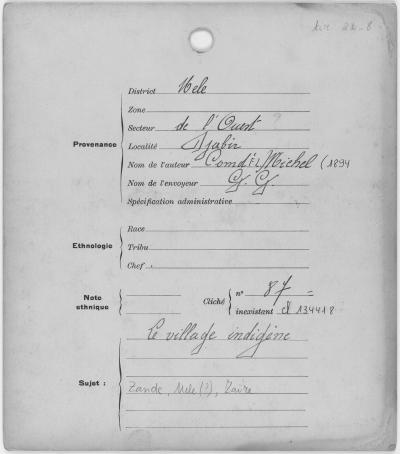 District Uele
Zone
Secteur de l'Ouest ?
Provenance
Localité Djabir
Nom de l'auteur Comdt L. Michel (1894
Nom de l'envoyeur
Spécification administrative
Race
Ethnologie
Tribu
Chef.
Note ethnique
Cliché
n° 87 =
inexistant cl 134418
Le village indigène
Sujet :
Zande, Uele (?), Zaïre